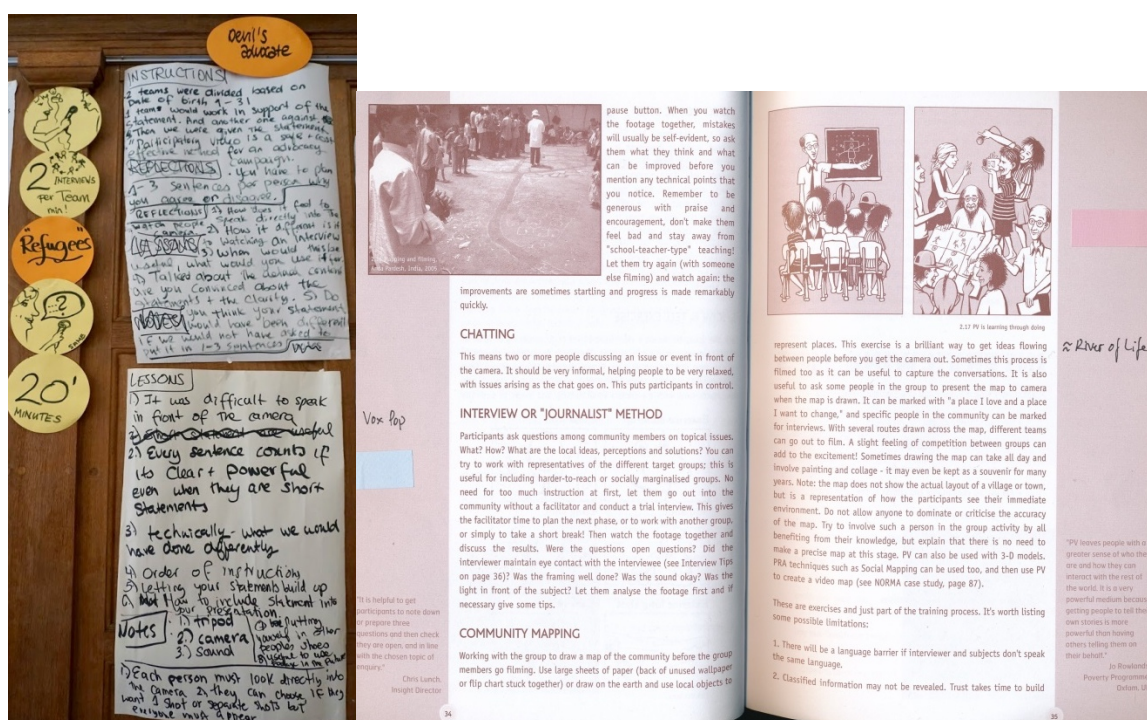 Devil's
advocate
2
INTERVIEWS
Per Team
min!
"Refugees"
?
20'
MINUTES
INSTRUCTIONS
2 teams were divided based on
Date of birth 1-31
1 team would work in support of the
statement. And another one against.
Then we were given the statement
"Participatory video is a safe + cost
effective method for an advocacy
campaign.
REFLECTIONS. You have to plan
1-3 Sentences per person why
you agree or disagree.
REFLECTIONS 1) How does it feel to
watch people speak directly into the
camera 2) How it different is it
to watching an interview
3) When would this be
useful, what would you use it for
4) Talked about the content
are you convinced about the
statements + the clarity. 5) Do
NOTES you think your statement
would have been different
if we would not have asked to
put it in 1-3 sentences
LESSONS
1) It was difficult to speak
in front of the camera
2) Every sentence counts if
its clear + powerful
even when they are short
statements
3) technically what we would
have done differently
4) Order of instruction
5) letting your statements build up
6) How to include statement into
your presentation.
Notes
1.) tripod
2.) camera
3.) sound
putting
yourself in other
peoples shoes
1) Each person must look directly into
the camera 2) they can choose if they
want 1 shot or separate shots but
everyone must appear
Vox Pop
"It is helpful to get
participants to note down
or prepare three
questions and then check
they are open, and in line
with the chosen topic of
enquiry."
Chris Lunch,
Insight Director
pause button. When you watch
the footage together, mistakes
will usually be self-evident, so ask
them what they think and what
can be improved before you
mention any technical points that
you notice. Remember to be
generous with praise and
encouragement, don't make them
feel bad and stay away from
"school-teacher-type" teaching!
Let them try again (with someone
else filming) and watch again: the
improvements are sometimes startling and progress is made remarkably
quickly.
CHATTING
This means two or more people discussing an issue or event in front of
the camera. It should be very informal, helping people to be very relaxed,
with issues arising as the chat goes on. This puts participants in control.
INTERVIEW OR "JOURNALIST" METHOD
Participants ask questions among community members on topical issues.
What? How? What are the local ideas, perceptions and solutions? You can
try to work with representatives of the different target groups; this is
useful for including harder-to-reach or socially marginalised groups. No
need for too much instruction at first, let them go out into the
community without a facilitator and conduct a trial interview. This gives
the facilitator time to plan the next phase, or to work with another group,
or simply to take a short break! Then watch the footage together and
discuss the results. Were the questions open questions? Did the
interviewer maintain eye contact with the interviewee (see Interview Tips
on page 36)? Was the framing well done? Was the sound okay? Was the
light in front of the subject? Let them analyse the footage first and if
necessary give some tips.
COMMUNITY MAPPING
Working with the group to draw a map of the community before the group
members go filming. Use large sheets of paper (back of unused wallpaper
or flip chart stuck together) or draw on the earth and use local objects to
34
2.17 PV is learning through doing
represent places. This exercise is a brilliant way to get ideas flowing
between people before you get the camera out. Sometimes this process is
filmed too as it can be useful to capture the conversations. It is also
useful to ask some people in the group to present the map to camera
when the map is drawn. It can be marked with "a place I love and a place
I want to change," and specific people in the community can be marked
for interviews. With several routes drawn across the map, different teams
can go out to film. A slight feeling of competition between groups can
add to the excitement! Sometimes drawing the map can take all day and
involve painting and collage - it may even be kept as a souvenir for many
years. Note: the map does not show the actual layout of a village or town,
but is a representation of how the participants see their immediate
environment. Do not allow anyone to dominate or criticise the accuracy
of the map. Try to involve such a person in the group activity by all
benefiting from their knowledge, but explain that there is no need to
make a precise map at this stage. PV can also be used with 3-D models.
PRA techniques such as Social Mapping can be used too, and then use PV
to create a video map (see NORMA case study, page 87).
These are exercises and just part of the training process. It's worth listing
some possible limitations:
1. There will be a language barrier if interviewer and subjects don't speak
the same language.
2. Classified information may not be revealed. Trust takes time to build
35
≈ River of Life
"PV leaves people with a
greater sense of who they
are and how they can
interact with the rest of
the world. It is a very
powerful medium because
getting people to tell their
own stories is more
powerful than having
others telling them on
their behalf."
Jo Rowland
Poverty Programme
Oxfam,